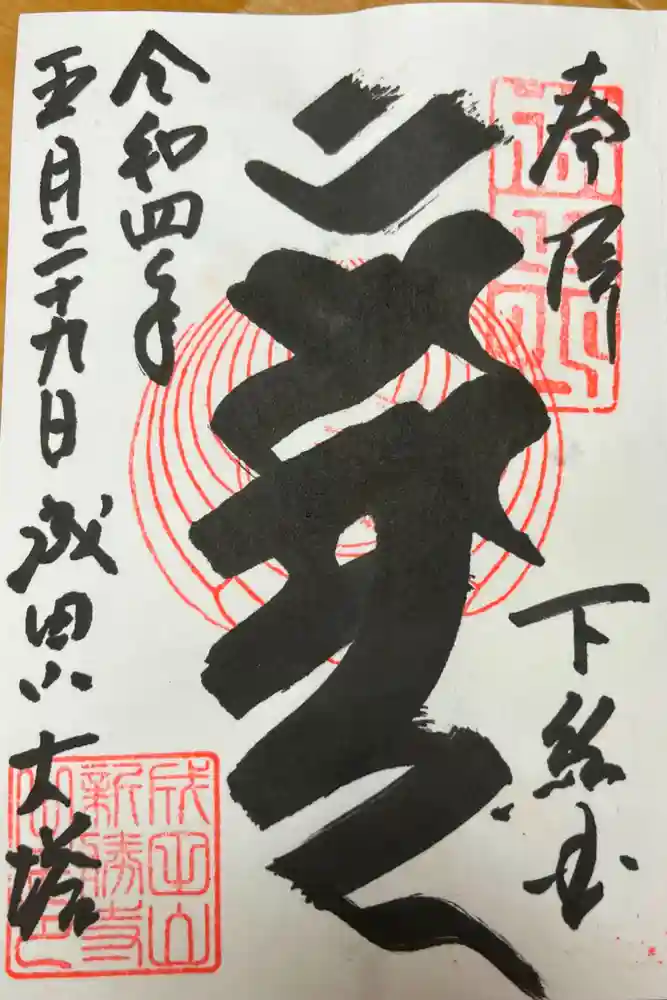 奉拝
下総国
令和四年
五月二十九日 成田山 大塔
成田山
新勝寺